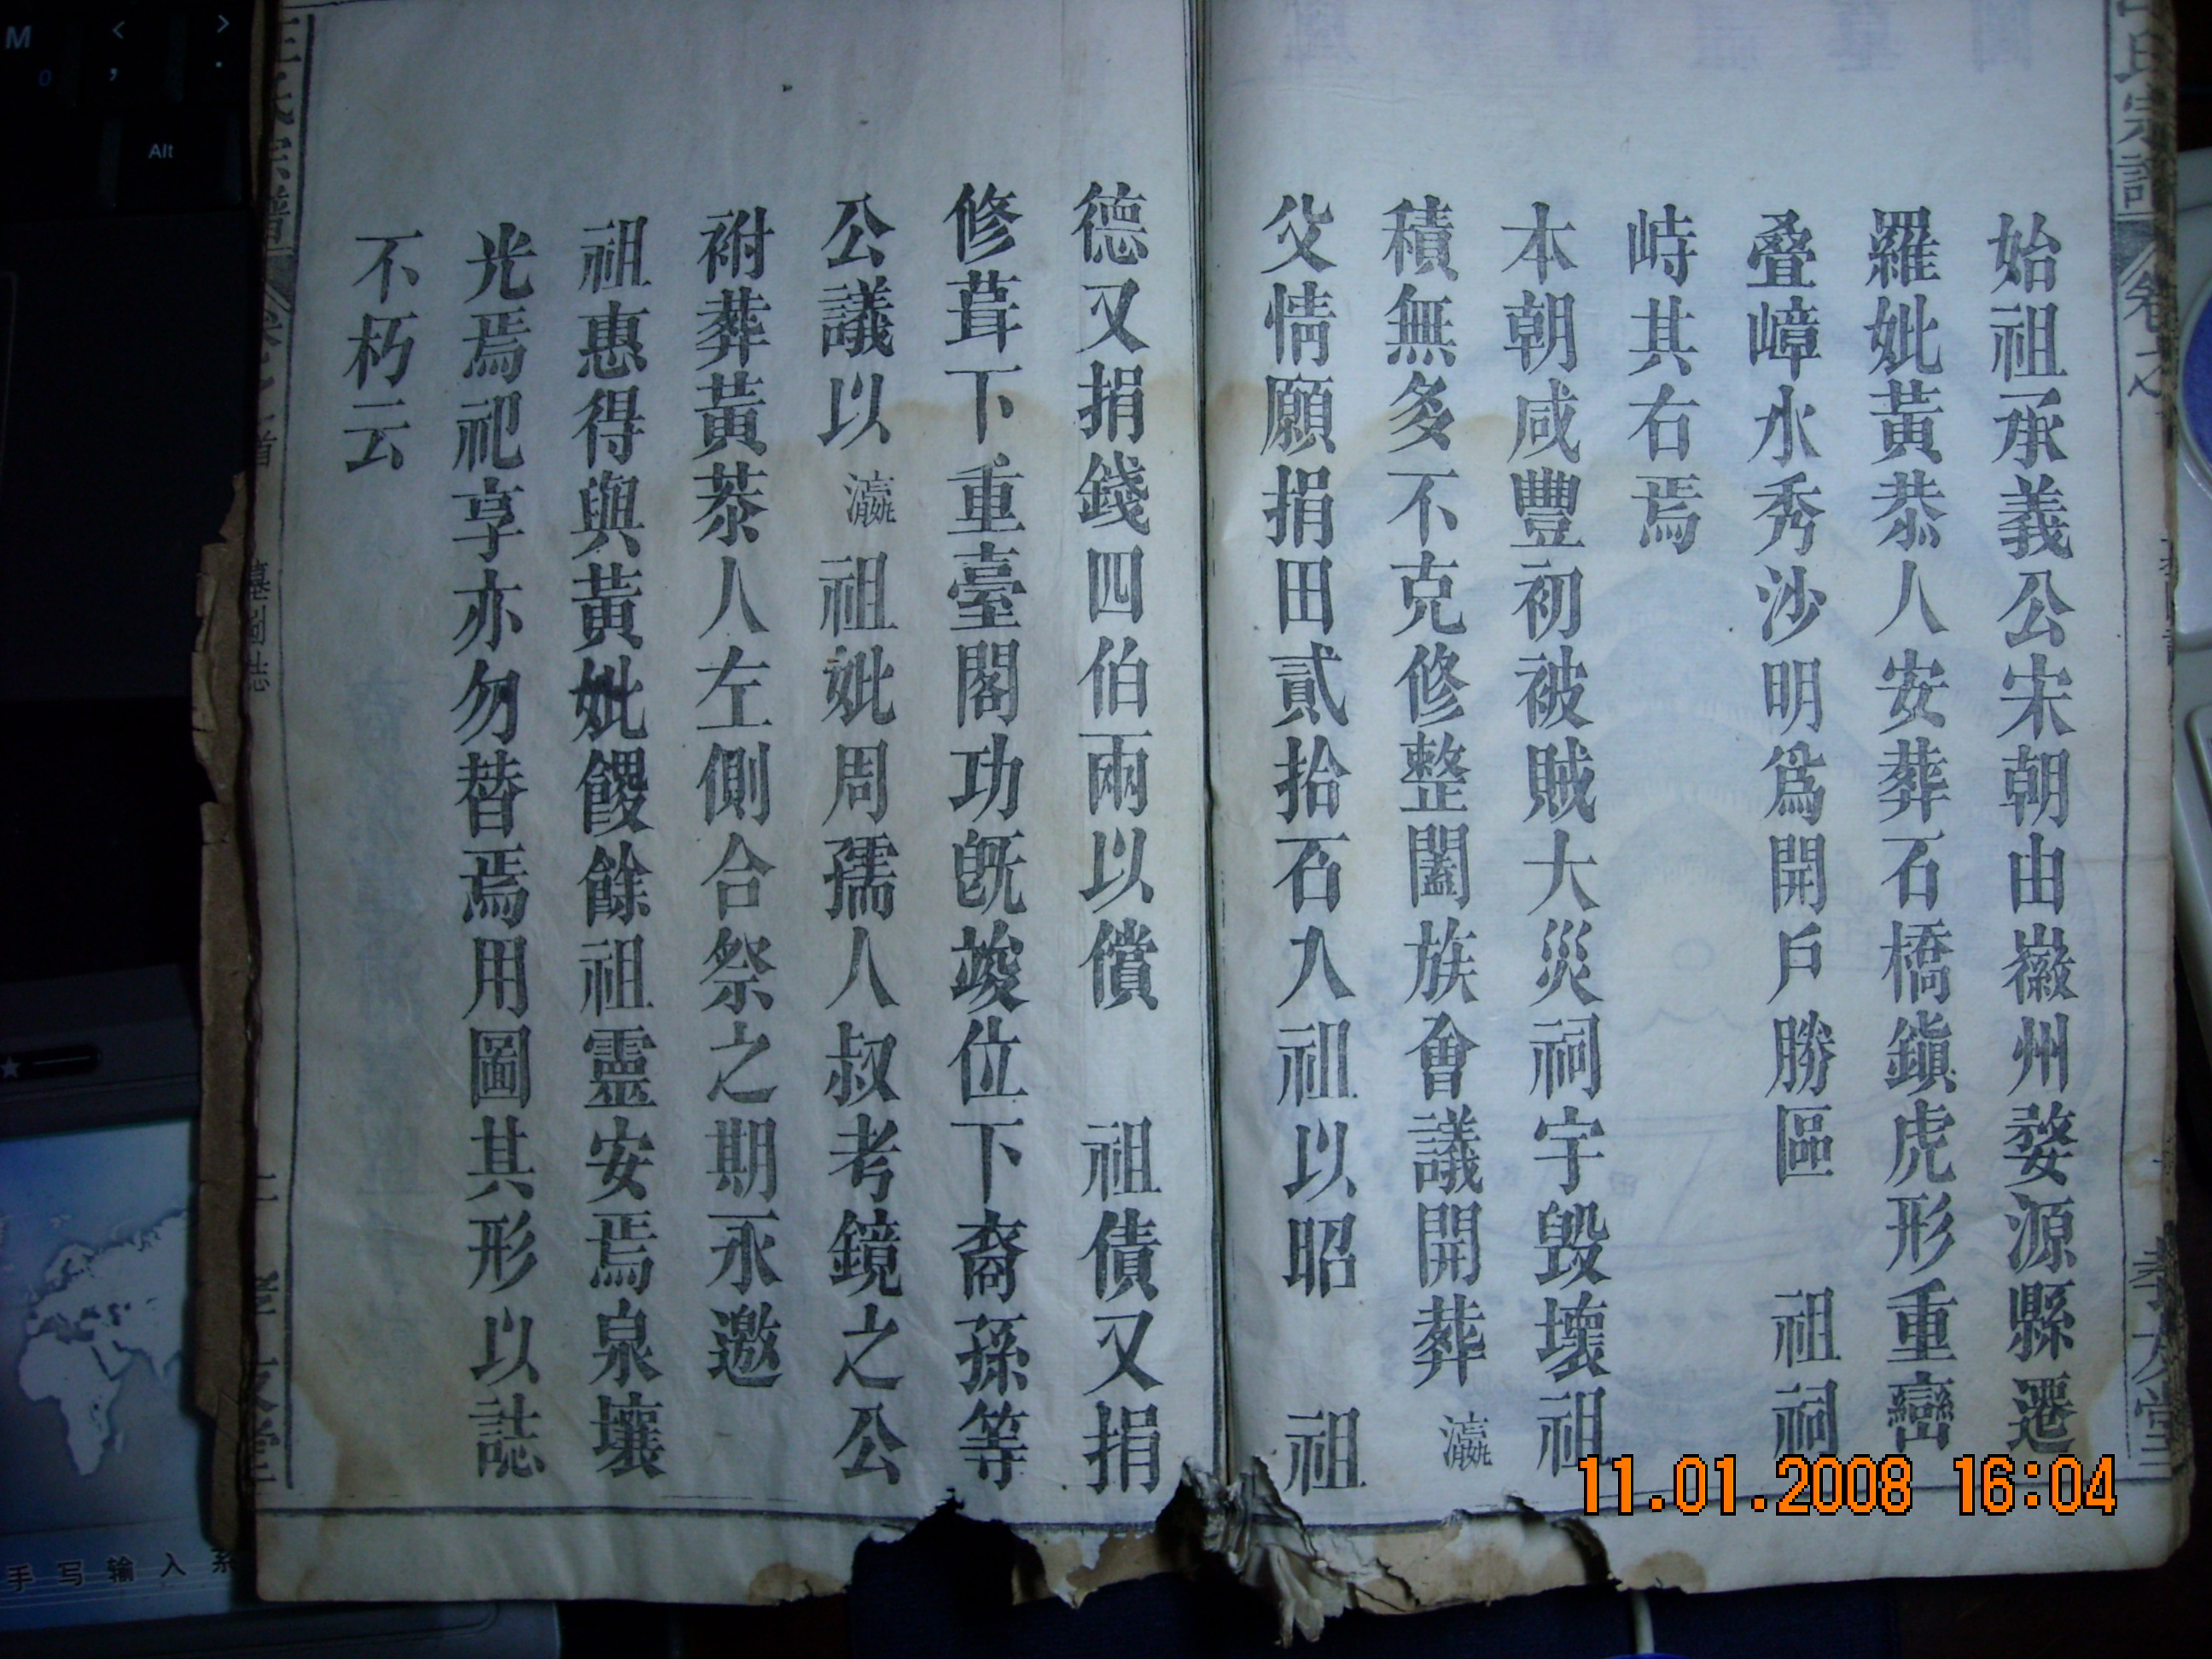 始祖承義公宋朝由徽州婺源縣遷
羅妣黃恭人安葬石橋鎮虎形重巒
叠嶂水秀沙明爲開戶勝區 祖祠
峙其右焉
本朝咸豐初被賊大災祠宇毁壞祖
積無多不克修整闔族會議開葬
父情願捐田貳拾石入祖以昭 祖
德又捐錢四伯兩以償 祖債又捐
修葺下重臺閣功旣竣位下裔孫等
公議以 祖妣周孺人叔考鏡之公
祔葬黃恭人左側合祭之期永邀
祖惠得與黃妣餕餘祖靈安焉泉壤
光焉祀享亦勿替焉用圖其形以誌
不朽云
王氏宗譜
墓圖誌
M
0
<
,
>
.
Alt
手写输入系
11.01.2008 16:04